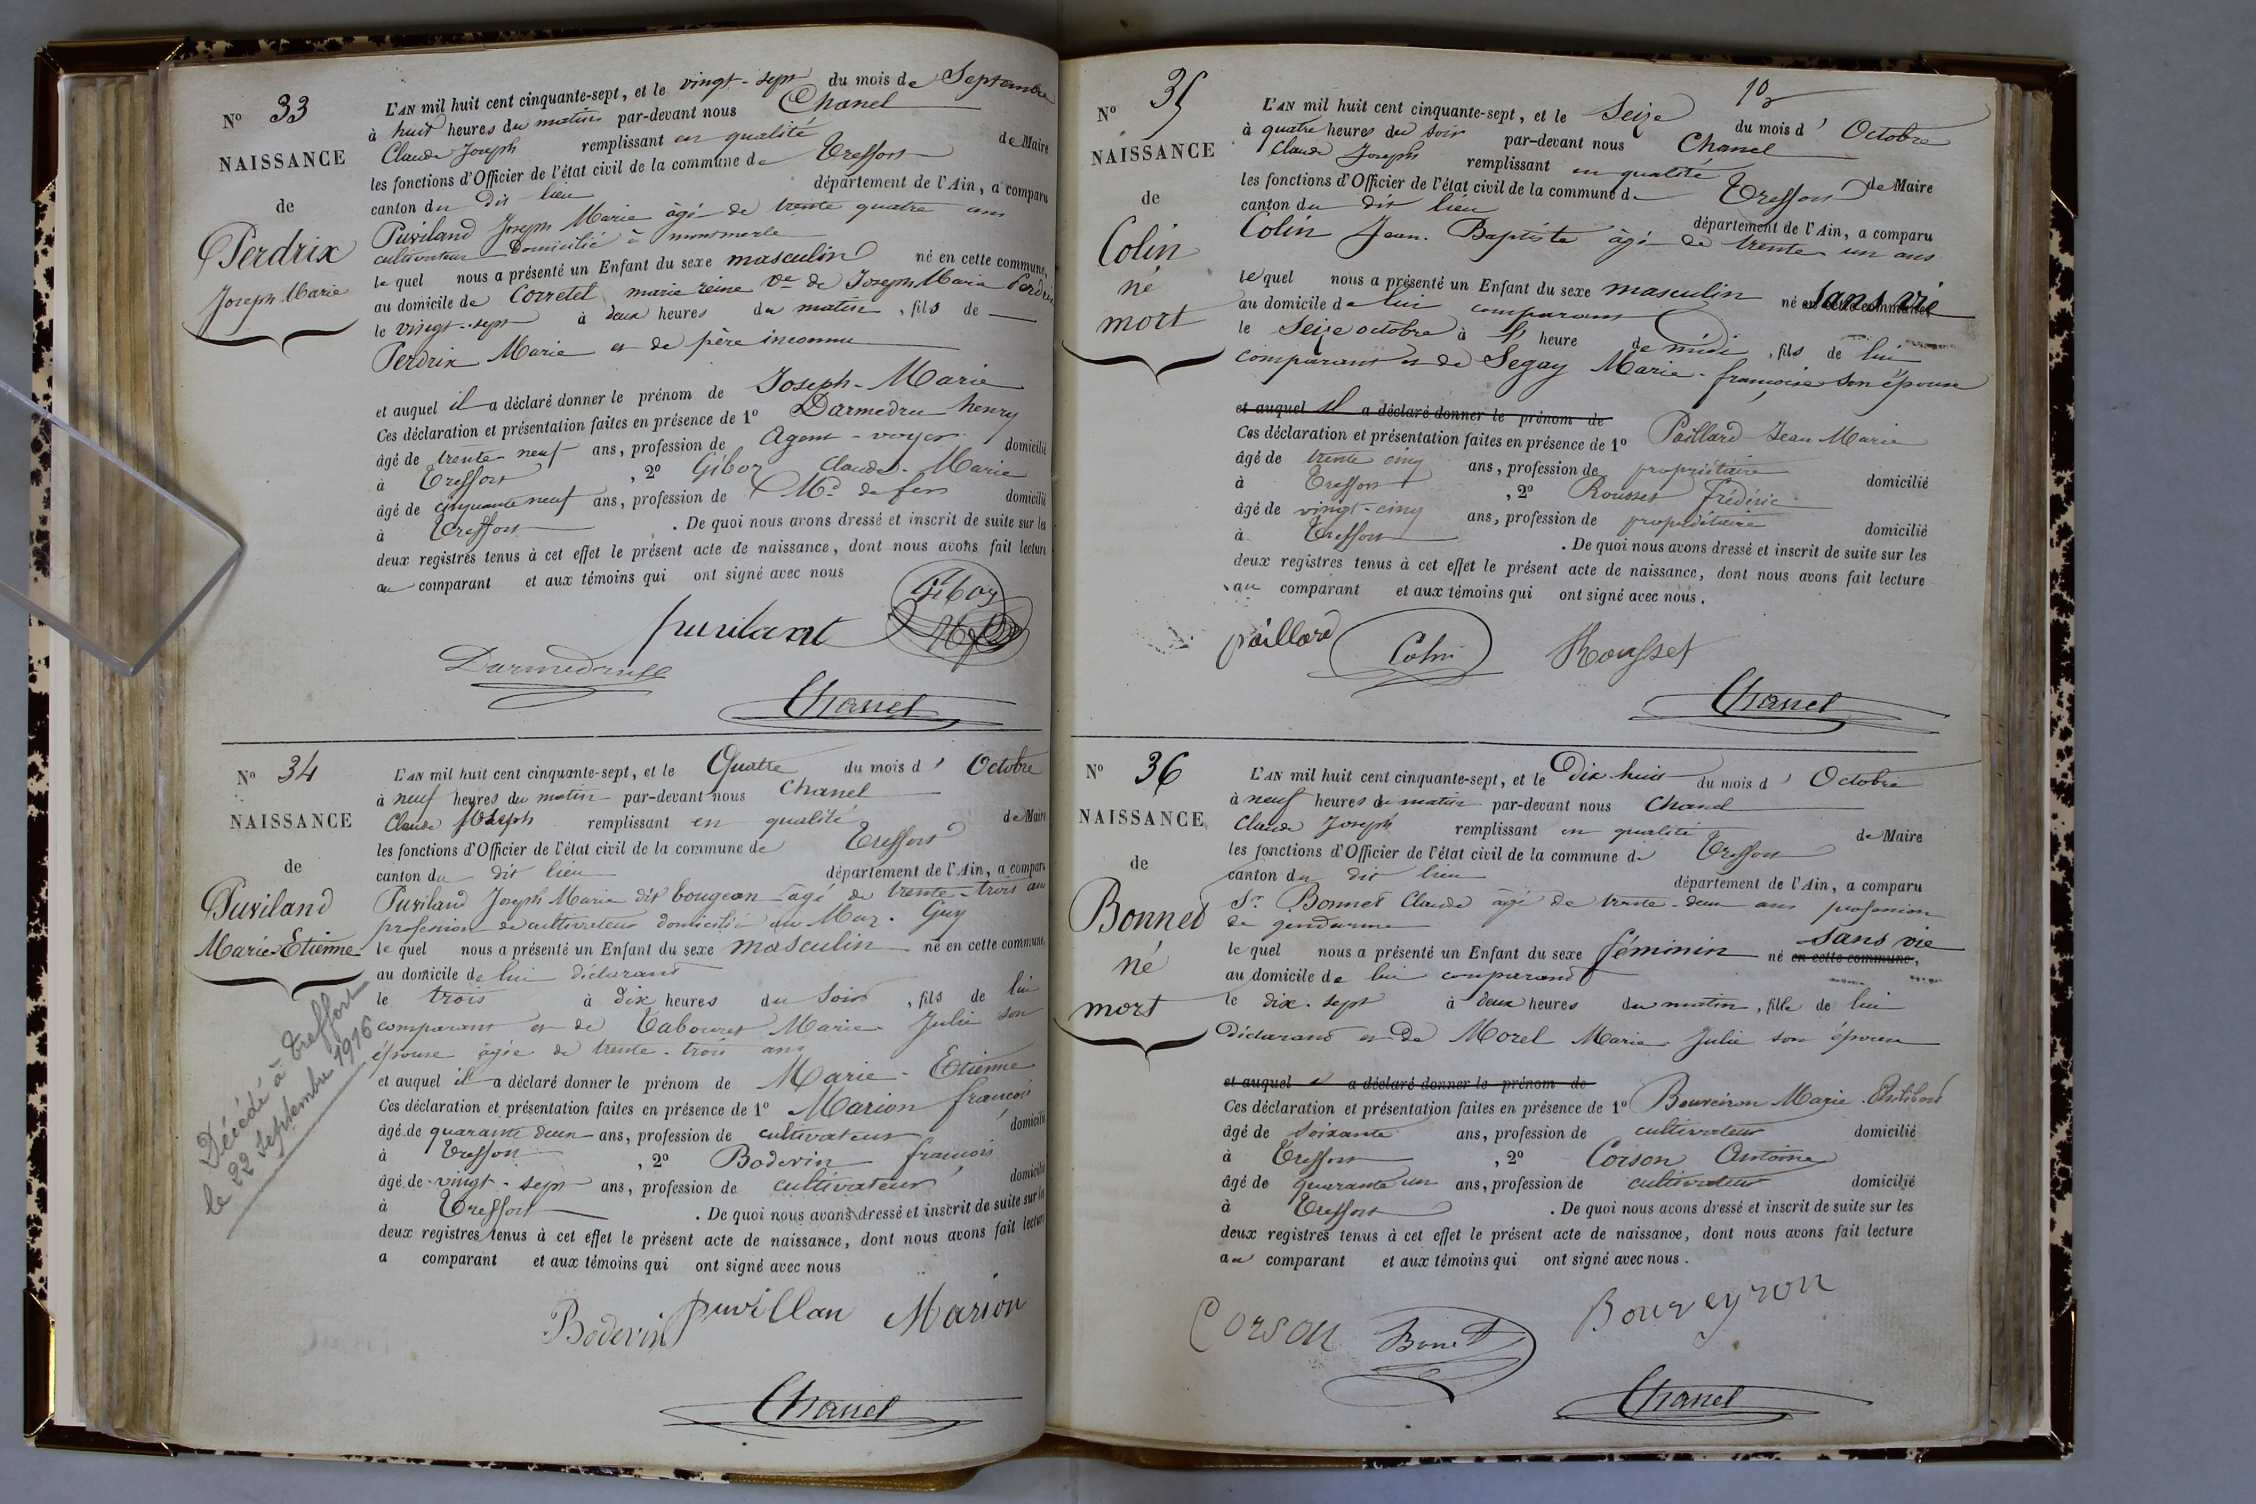 N° 33
NAISSANCE
de
Perdrix
Joseph Marie
L'AN mil huit cent cinquante-sept, et le vingt-sept du mois de Septembre
à huit heures du matin par-devant nous Chanel
Claude Joseph remplissant en qualité de Maire
les fonctions d'Officier de l'état civil de la commune de Treffort
canton du dit lieu département de l'Ain, a comparu
Puviland Joseph Marie âgé de trente quatre ans
cultivateur Domicilié à montmerle
le quel nous a présenté un Enfant du sexe masculin né en cette commune,
au domicile de Corretel marie reine Ve de Joseph Marie Perdrix
le vingt-sept à deux heures du matin, fils de
Perdrix Marie et de père inconnu
et auquel il a déclaré donner le prénom de Joseph-Marie
Ces déclaration et présentation faites en présence de 1° Darmedru henry
âgé de trente-neuf ans, profession de Agent-voyer domicilié
à Treffort, 2° Giboz Claude-Marie
âgé de cinquante neuf ans, profession de Md de fers domicilié
à Treffort. De quoi nous avons dressé et inscrit de suite sur les
deux registres tenus à cet effet le présent acte de naissance, dont nous avons fait lecture
au comparant et aux témoins qui ont signé avec nous
Giboz
puvilant
Darmedru
Chanel
N° 34
NAISSANCE
de
Puviland
Marie-Etienne
Décédé à Treffort
le 22 septembre 1916
L'AN mil huit cent cinquante-sept, et le Quatre du mois d' Octobre
à neuf heures du matin par-devant nous Chanel
Claude Joseph remplissant en qualité de Maire
les fonctions d'Officier de l'état civil de la commune de Treffort
canton du dit lieu département de l'Ain, a comparu
Puviland Joseph Marie dit bougean âgé de trente-trois ans
profession de cultivateur domicilié au Mas-Guy
le quel nous a présenté un Enfant du sexe masculin né en cette commune,
au domicile de lui déclarant
le trois à dix heures du soir, fils de lui
comparant et de Tabouret Marie Julie son
épouse âgée de trente-trois ans
et auquel il a déclaré donner le prénom de Marie-Etienne
Ces déclaration et présentation faites en présence de 1° Marion françois
âgé de quarante deux ans, profession de cultivateur domicilié
à Treffort, 2° Bodevin françois
âgé de vingt-sept ans, profession de cultivateur domicilié
à Treffort. De quoi nous avons dressé et inscrit de suite sur les
deux registres tenus à cet effet le présent acte de naissance, dont nous avons fait lecture
a comparant et aux témoins qui ont signé avec nous
Bodevin puvillan Marion
Chanel
N° 35
NAISSANCE
de
Colin
né
mort
L'AN mil huit cent cinquante-sept, et le Seize du mois d' Octobre
à quatre heures du soir par-devant nous Chanel
Claude Joseph remplissant en qualité de Maire
les fonctions d'Officier de l'état civil de la commune de Treffort
canton du dit lieu département de l'Ain, a comparu
Colin Jean-Baptiste âgé de trente un ans
le quel nous a présenté un Enfant du sexe masculin né en cette commune, sans vie
au domicile de lui comparant
le Seize octobre à heure de midi, fils de lui
comparant et de Segay Marie-françoise son épouse
et auquel il a déclaré donner le prénom de
Ces déclaration et présentation faites en présence de 1° Paillard Jean Marie
âgé de trente cinq ans, profession de propriétaire domicilié
à Treffort, 2° Rousset Frédéric
âgé de vingt-cinq ans, profession de propriétaire domicilié
à Treffort. De quoi nous avons dressé et inscrit de suite sur les
deux registres tenus à cet effet le présent acte de naissance, dont nous avons fait lecture
au comparant et aux témoins qui ont signé avec nous.
paillard Colin Rousset
Chanel
N° 36
NAISSANCE
de
Bonnet
né
mort
L'AN mil huit cent cinquante-sept, et le Dix-huit du mois d' Octobre
à neuf heures du matin par-devant nous Chanel
Claude Joseph remplissant en qualité de Maire
les fonctions d'Officier de l'état civil de la commune de Treffort
canton du dit lieu département de l'Ain, a comparu
Sr Bonnet Claude âgé de trente-deux ans profession
de gendarme
le quel nous a présenté un Enfant du sexe féminin né en cette commune, sans vie
au domicile de lui comparant
le dix-sept à deux heures du matin, fille de lui
déclarant et de Morel Marie Julie son épouse
et auquel il a déclaré donner le prénom de
Ces déclaration et présentation faites en présence de 1° Bouveiron Marie Philibert
âgé de soixante ans, profession de cultivateur domicilié
à Treffort, 2° Corson Antoine
âgé de quarante un ans, profession de cultivateur domicilié
à Treffort. De quoi nous avons dressé et inscrit de suite sur les
deux registres tenus à cet effet le présent acte de naissance, dont nous avons fait lecture
au comparant et aux témoins qui ont signé avec nous.
Corson Bonnet Bouveyron
Chanel